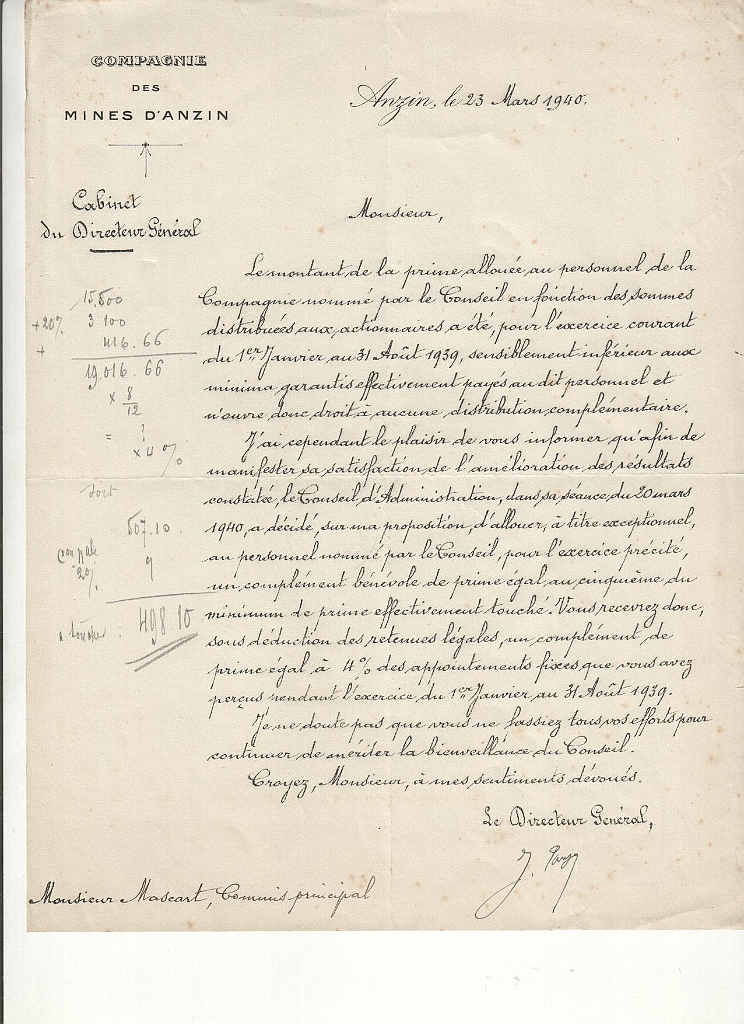 COMPAGNIE
DES
MINES D'ANZIN
Anzin, le 23 Mars 1940.
Cabinet
du Directeur Général
Monsieur,
Le montant de la prime allouée au personnel de la
Compagnie nommé par le Conseil en fonction des sommes
distribuées aux actionnaires a été, pour l'exercice courant
du 1er Janvier au 31 Août 1939, sensiblement inférieur aux
minima garantis effectivement payés au dit personnel et
n'ouvre donc droit à aucune distribution complémentaire.
J'ai cependant le plaisir de vous informer qu'afin de
manifester sa satisfaction de l'amélioration des résultats
constatée, le Conseil d'Administration, dans sa séance du 20 mars
1940, a décidé, sur ma proposition, d'allouer, à titre exceptionnel,
au personnel nommé par le Conseil, pour l'exercice précité,
un complément bénévole de prime égal au cinquième du
minimum de prime effectivement touché. Vous recevrez donc,
sous déduction des retenues légales, un complément de
prime égal à 4% des appointements fixes que vous avez
perçus pendant l'exercice du 1er Janvier au 31 Août 1939.
Je ne doute pas que vous ne fassiez tous vos efforts pour
continuer de mériter la bienveillance du Conseil.
Croyez, Monsieur, à mes sentiments dévoués.
Le Directeur Général,
Monsieur Mascart, Commis principal
15.500
+20% 3 100
+ 416.66
19.016.66
× 8/12
= ?
× 4 %
soit
507.10
2%
9
498.10